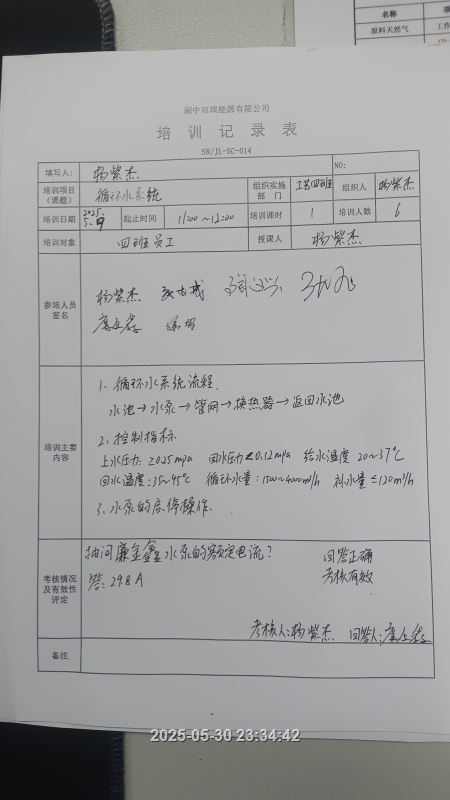 名称
原料天然气
工作
阆中双瑞能源有限公司
培训记录表
SR/JL-SC-014
填写人: 杨紫杰 NO:
培训项目(课题) 循环水系统 组织实施部门 工艺四班 组织人 杨紫杰
培训日期 2025.5.9 起止时间 11:00~12:00 培训课时 1 培训人数 6
培训对象 四班员工 授课人 杨紫杰
参培人员签名
杨紫杰
培训主要内容
1、循环水系统流程
水池→水泵→管网→换热器→返回水池
2、控制指标
上水压力: ≥0.25mpa 回水压力<0.12mpa 给水温度 20~37℃
回水温度: 35~45℃ 循环水量: 1500~4000m³/h 补水量≤120m³/h
3、水泵的启停操作.
考核情况及有效性评定
抽问廉金鑫水泵的额定电流? 回答正确
答: 29.8A 考核有效
考核人: 杨紫杰 回答人:
备注
2025-05-30 23:34:42